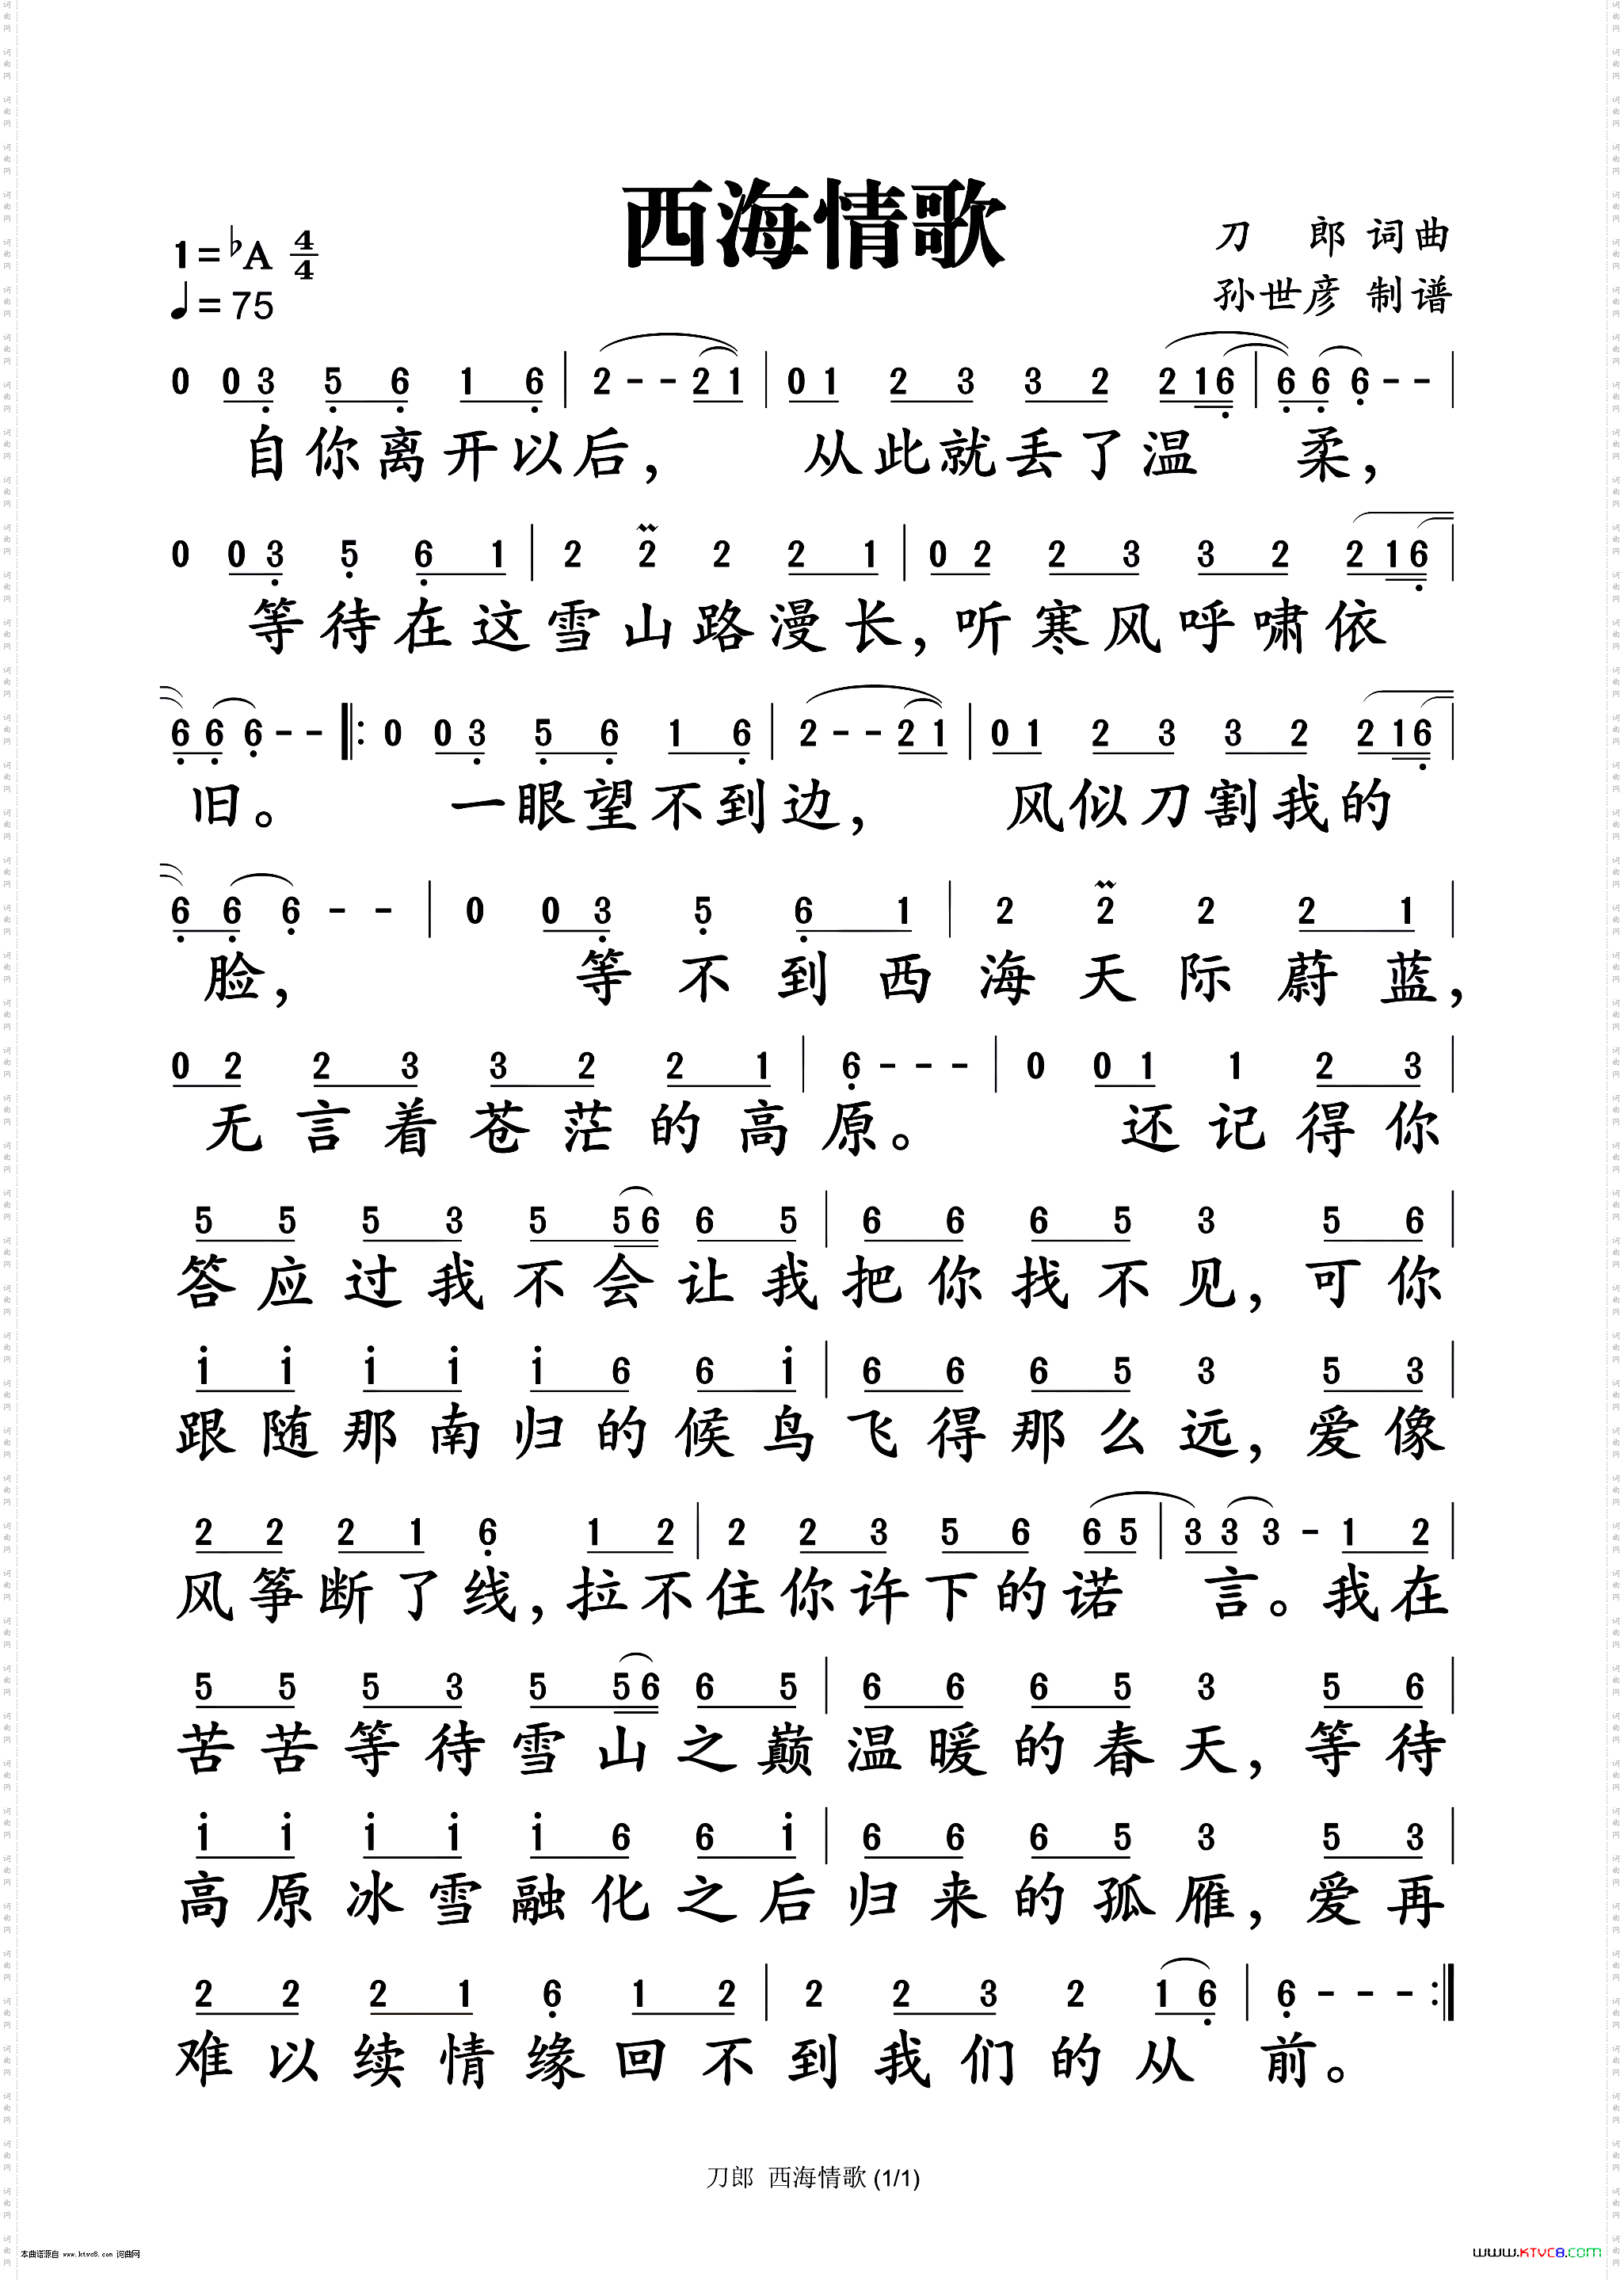 西海情歌
1=♭A 4/4
♩=75
刀 郎 词曲
孙世彦 制谱
0 0 3 5 6 1 6 | 2 - - 2 1 | 0 1 2 3 3 2 2 1 6 | 6 6 6 - - |
自你离开以后, 从此就丢了温 柔,
0 0 3 5 6 1 | 2 2 2 2 1 | 0 2 2 3 3 2 2 1 6 |
等待在这雪山路漫长, 听寒风呼啸依
6 6 6 - - |: 0 0 3 5 6 1 6 | 2 - - 2 1 | 0 1 2 3 3 2 2 1 6 |
旧。 一眼望不到边, 风似刀割我的
6 6 6 - - | 0 0 3 5 6 1 | 2 2 2 2 1 |
脸, 等不到西海天际蔚蓝,
0 2 2 3 3 2 2 1 | 6 - - - | 0 0 1 1 2 3 |
无言着苍茫的高原。 还记得你
5 5 5 3 5 5 6 6 5 | 6 6 6 5 3 5 6 |
答应过我不会让我把你找不见, 可你
i i i i i 6 6 i | 6 6 6 5 3 5 3 |
跟随那南归的候鸟飞得那么远, 爱像
2 2 2 1 6 1 2 | 2 2 3 5 6 6 5 | 3 3 3 - 1 2 |
风筝断了线, 拉不住你许下的诺 言。我在
5 5 5 3 5 5 6 6 5 | 6 6 6 5 3 5 6 |
苦苦等待雪山之巅温暖的春天, 等待
i i i i i 6 6 i | 6 6 6 5 3 5 3 |
高原冰雪融化之后归来的孤雁, 爱再
2 2 2 1 6 1 2 | 2 2 3 2 1 6 | 6 - - - :|
难以续情缘回不到我们的从 前。
刀郎 西海情歌 (1/1)
本曲谱源自 www.ktvc8.com 词曲网
www.KTVC8.com